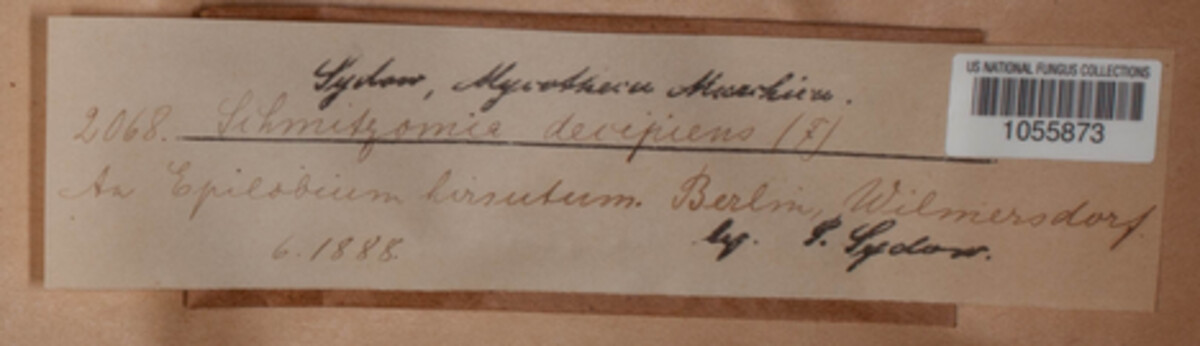 Sydow, Mycotheca Marchica.
2068. Schmitzomia decipiens (F)
An Epilobium hirsutum. Berlin, Wilmersdorf.
6. 1888.
leg. P. Sydow.
US NATIONAL FUNGUS COLLECTIONS
1055873